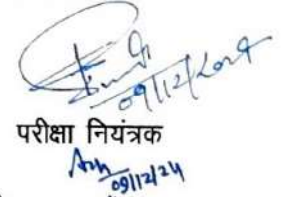 09/12/2024
परीक्षा नियंत्रक
09/12/24